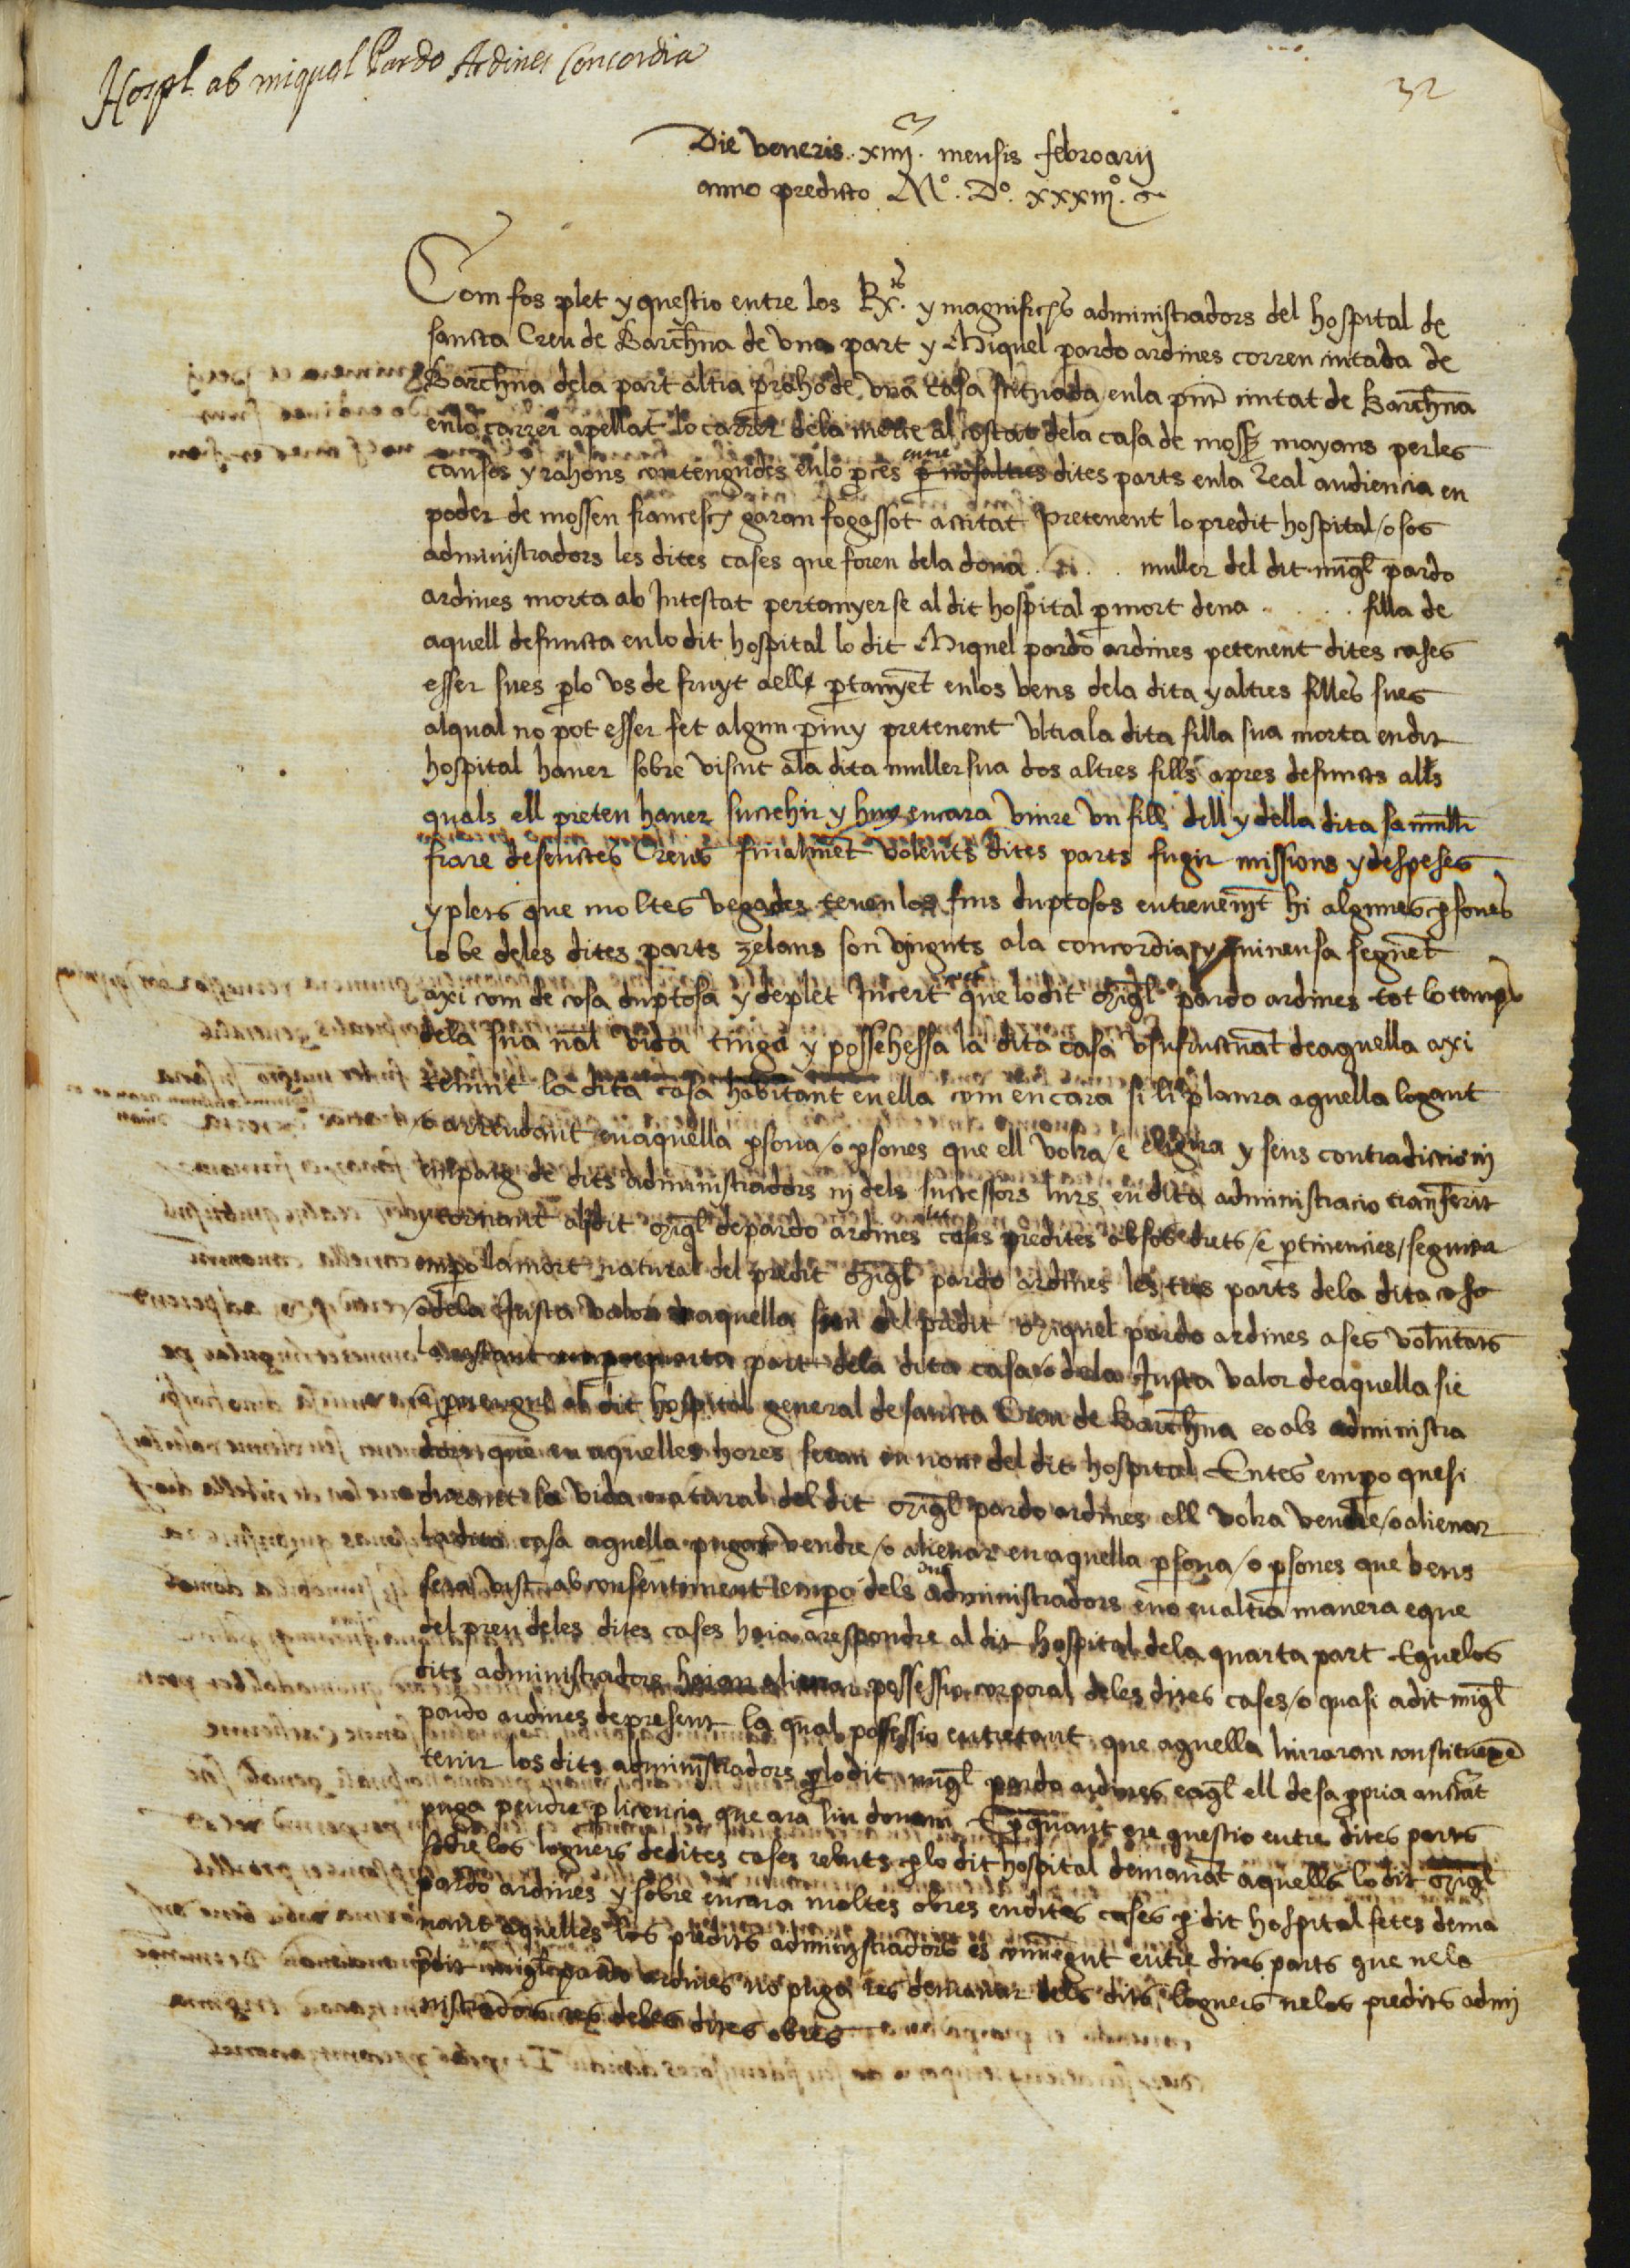 Hospl ab miquel Pardo Ardines Concordia
32
Die veneris xiiij mensis febroarij
anno predicto Mº. Dº. xxxiiijº.
Com fos plet y questio entre los Rx. y magnifichs administradors del hospital de
sancta Creu de Barchna de una part y Miquel pardo ardines correu ciutada de
Barchna dela part altra p raho de una casa scituada enla pnt ciutat de Barchna
enlo carrer apellat lo carrer dela merce al costat dela casa de moss mayans perles
causes y rahons contengudes enlo pces entre dites parts enla Real audiencia en
poder de mossen francesch garau fogassot actitat Pretenent lo predit hospital /o sos
administradors les dites cases que foren dela dona . . . muller del dit migl pardo
ardines morta ab Intestat pertanyer se al dit hospital p mort dena . . . . filla de
aquell defuncta enlo dit hospital lo dit Miquel pardo ardines petenent dites cases
esser sues plo us de fruyt aell ptanyet enlos bens dela dita y altres filles sues
alqual no pot esser fet algun piuy pretenent ultra la dita filla sua morta en dit
hospital haver sobre viscut ala dita muller sua dos altres fills apres defuncts alls
quals ell preten haver succehir y huy encara viure un fill dell y della dita sa mullr
frare de senctes Creus finalment volents dites parts fugir missions y despeses
y plets que moltes vegades tenen los fins duptosos entrevenint hi algunes psones
lo be deles dites parts zelans son vinguts ala concordia y avinensa seguet
axi com de cosa duptosa y de plet Incert que lo dit Migl pardo ardines tot lo temps
dela sua nal vida tinga y possehesca la dita casa usufructuat de aquella axi
tenint la dita casa habitant en ella com encara si li plaura aquella logant
/o arrendant en aquella psona /o psones que ell volra /e eligira y sens contradictio nj
empaig de dits administradors nj dels successors lurs en dita administracio transferit
y tornant al dit Migl de pardo ardines les cases predites ab sos drets /e ptinencies / seguida
empo la mort natural del predit Migl pardo ardines les tres parts dela dita casa
/o dela Justa valor de aquella sien del predit Miquel pardo ardines a ses voluntats
la restant quarta part dela dita casa /o dela Justa valor de aquella sie
/e pvengue al dit hospital general de sancta Creu de Barchna eo als administra
dors que en aquelles hores seran en nom del dit hospital Entes empo que si
durant la vida natural del dit Migl pardo ardines ell volra vendre /o alienar
la dita casa aquella puga vendre /o alienar en aquella psona /o psones que bens
sera vist ab consentiment empo dels administradors eno en altra manera e que
del preu deles dites cases haia a respondre al dit hospital dela quarta part E que los
dits administradors haian a liurar possessio corporal deles dites cases /o quasi a dit migl
pardo ardines de present la qual possessio entretant que aquella liuraran constituexe
tenir los dits administradors plo dit migl pardo ardines e aql ell de sa ppria auctat
puga pendre p licencia que ara lin donam E pquant ere questio entre dites parts
sobre los loguers de dites cases rebuts plo dit hospital demanat aquells lo dit Migl
pardo ardines y sobre encara moltes obres en dites cases p dit hospital fetes dema
nant aquelles los predits administradors es convengut entre dites parts que nelo
pdit migl pardo ardines no puga res demanar dels dits loguers nelos predits admj
nistradors res deles dites obres